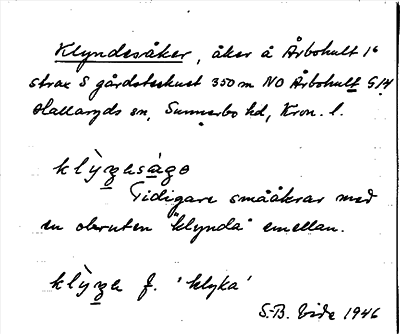 Klyndesåker, åker å Årbohult 1⁶
strax S gårdstecknet 350 m NO Årbohult G14
Hallaryds sn, Sunnerbo hd, Kron. l.
Tidigare smååkrar med
en obruten "klynda" emellan.
f. 'klyka'
S.-B. Vide 1946